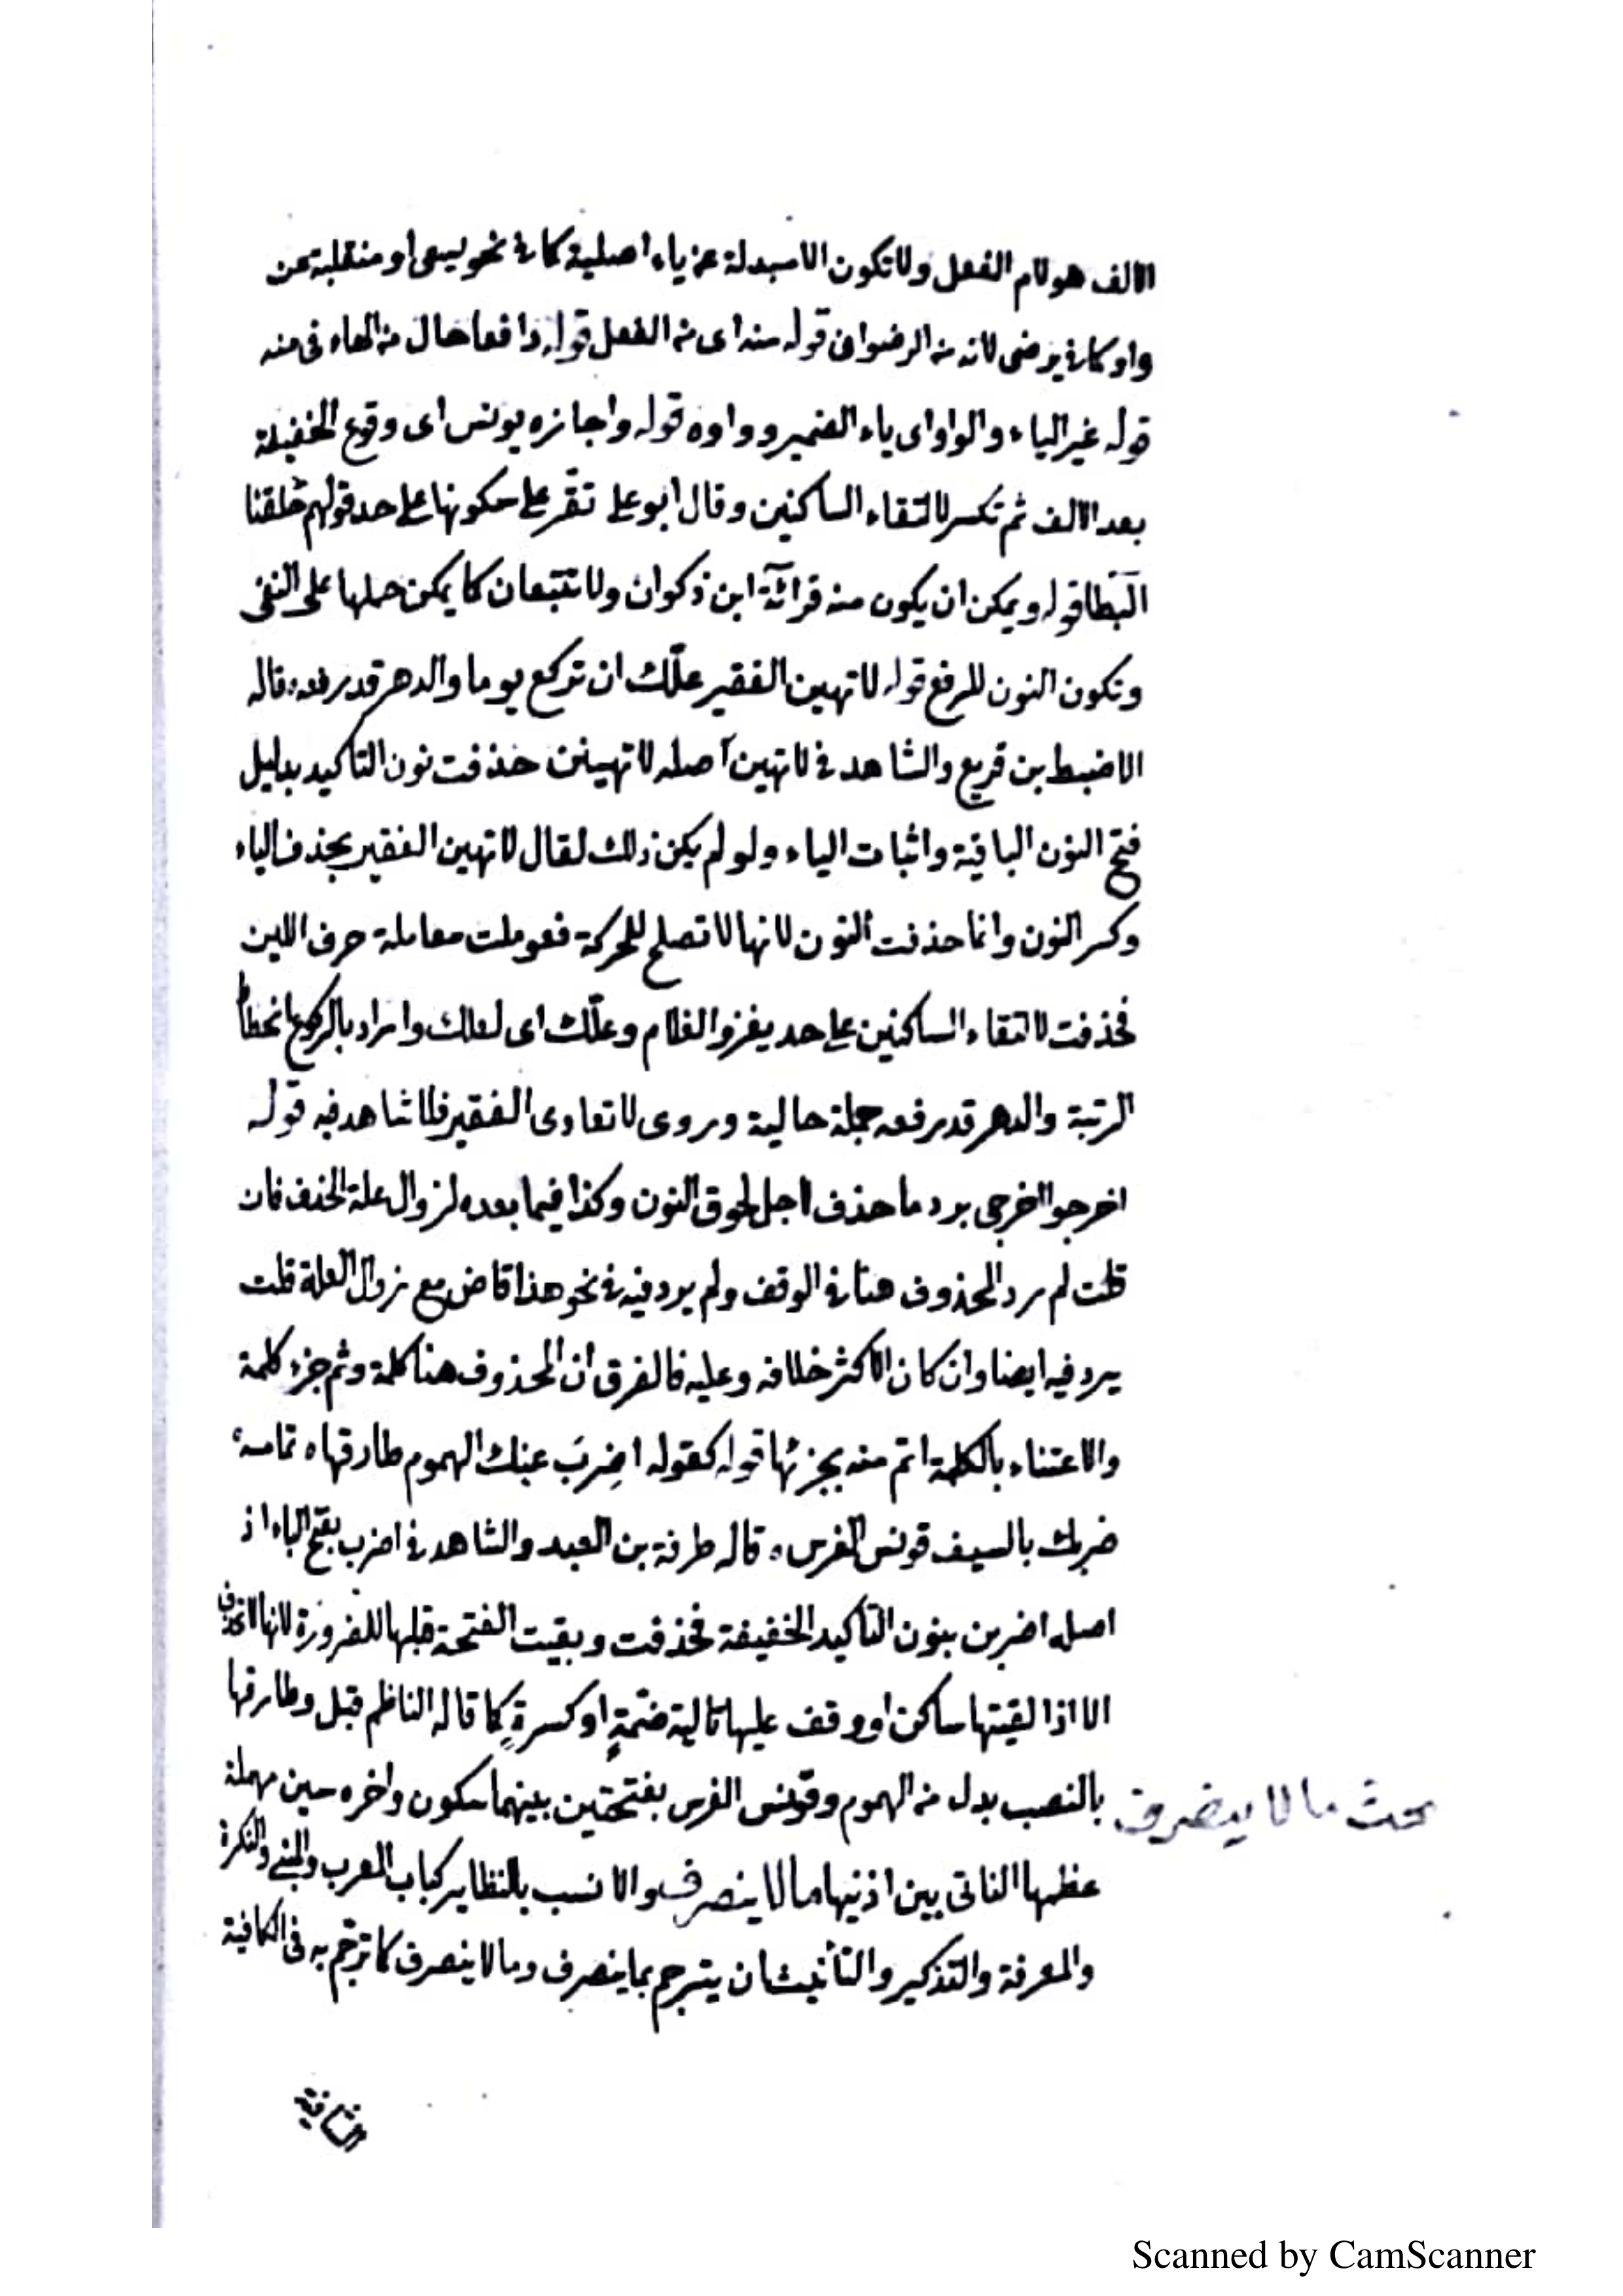 الالف هو لام الفعل ولا تكون الا مبدلة عن ياء اصلية كما في نحو يسعى او منقلبة عن
واو كما في يرضى لانه من الرضوان قوله منه اى من الفعل قوله رافعا حال من الهاء فى منه
قوله غير الياء والواو اى ياء الضمير وواوه قوله واجازه يونس اى وقوع الخفيفة
بعد الالف ثم تكسر لالتقاء الساكنين وقال ابو على تقر على سكونها على حد قولهم حلقتا
البطا قوله ويمكن ان يكون منه قرائة ابن ذكوان ولا تتبعان كما يمكن حملها على النفى
وتكون النون للرفع قوله لا تهين الفقير علّك ان تركع يوما والدهر قد رفعه قاله
الاضبط بن قريع والشاهد في لا تهين اصله لا تهينن حذفت نون التاكيد بدليل
فتح النون الباقية واثبات الياء ولو لم يكن ذلك لقال لا تهين الفقير بحذف الياء
وكسر النون وانما حذفت النون لانها لا تصلح للحركة فعوملت معاملة حرف اللين
فحذفت لالتقاء الساكنين على حد يغزو الغلام وعلّك اى لعلك واراد بالركوع انحطاط
الرتبة والدهر قد رفعه جملة حالية وروى لا تعادى الفقير فلا شاهد فيه قوله
اخرجوا اخرجى برد ما حذف اجل لحوق النون وكذا فيما بعده لزوال علة الحذف فان
قلت لم رد المحذوف هنا في الوقف ولم يرد فيه في نحو هذا قاض مع زوال العلة قلت
يرد فيه ايضا وان كان الاكثر خلافه وعليه فالفرق ان المحذوف هنا كلمة وثم جزء كلمة
والاعتناء بالكلمة اتم منه بجزئها قوله كقوله اضرِبَ عنك الهموم طارقها ه تمامه
ضربك بالسيف قونس الفرس ه قاله طرفة بن العبد والشاهد في اضرب بفتح الباء اذ
اصله اضربن بنون التاكيد الخفيفة فحذفت وبقيت الفتحة قبلها للضرورة لانها لا تحذف
الا اذا لقيتها ساكن او وقف عليها تالية ضمّةٍ او كسرةٍ كما قاله الناظم قبل وطارقها
بالنصب بدل من الهموم وقونس الفرس بفتحتين بينهما سكون واخره سين مهملة
بحث ما لا ينصرف
عظمها الناتى بين اذنيها ما لا ينصرف والانسب بالنظاير كباب المعرب والمبنى والنكرة
والمعرفة والتذكير والتأنيث ان يترجم بما ينصرف وما لا ينصرف كما ترجم به فى الكافية
الشافية
Scanned by CamScanner